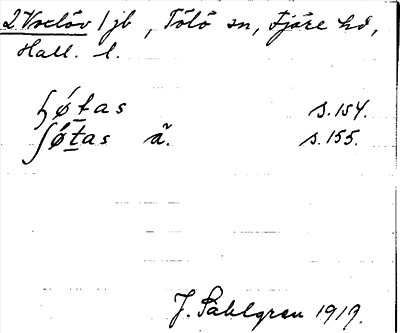 2 Vreelöv /jb, Tölö sn, Fjäre hd,
Hall. l.
ɧø´tas s.154.
ʃø´tas ä. s.155.
J. Sahlgren 1919.